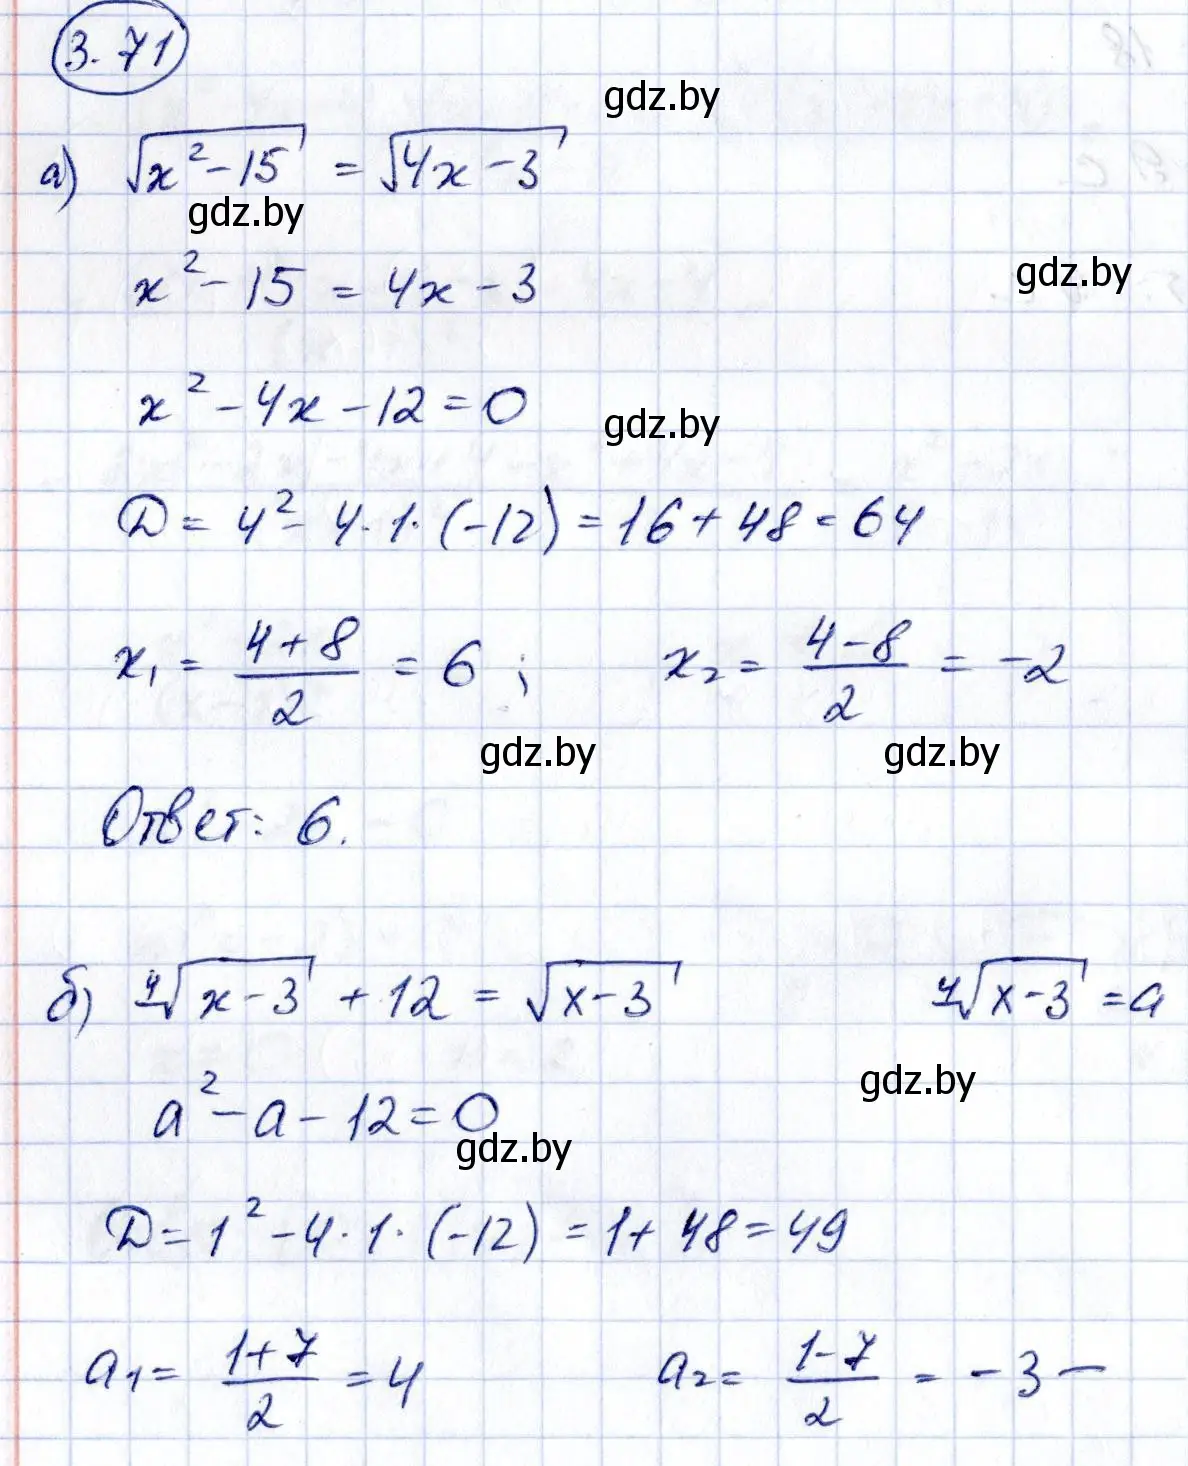 3.71
gdz.by
а) √(x² - 15) = √(4x - 3)
gdz.by
x² - 15 = 4x - 3
gdz.by
x² - 4x - 12 = 0
gdz.by
D = 4² - 4 · 1 · (-12) = 16 + 48 = 64
x₁ = (4 + 8)/2 = 6 ; x₂ = (4 - 8)/2 = -2
gdz.by gdz.by
Ответ: 6.
б) ⁴√(x - 3) + 12 = √(x - 3) ⁴√(x - 3) = a
gdz.by
a² - a - 12 = 0
gdz.by
D = 1² - 4 · 1 · (-12) = 1 + 48 = 49
a₁ = (1 + 7)/2 = 4 a₂ = (1 - 7)/2 = -3 —